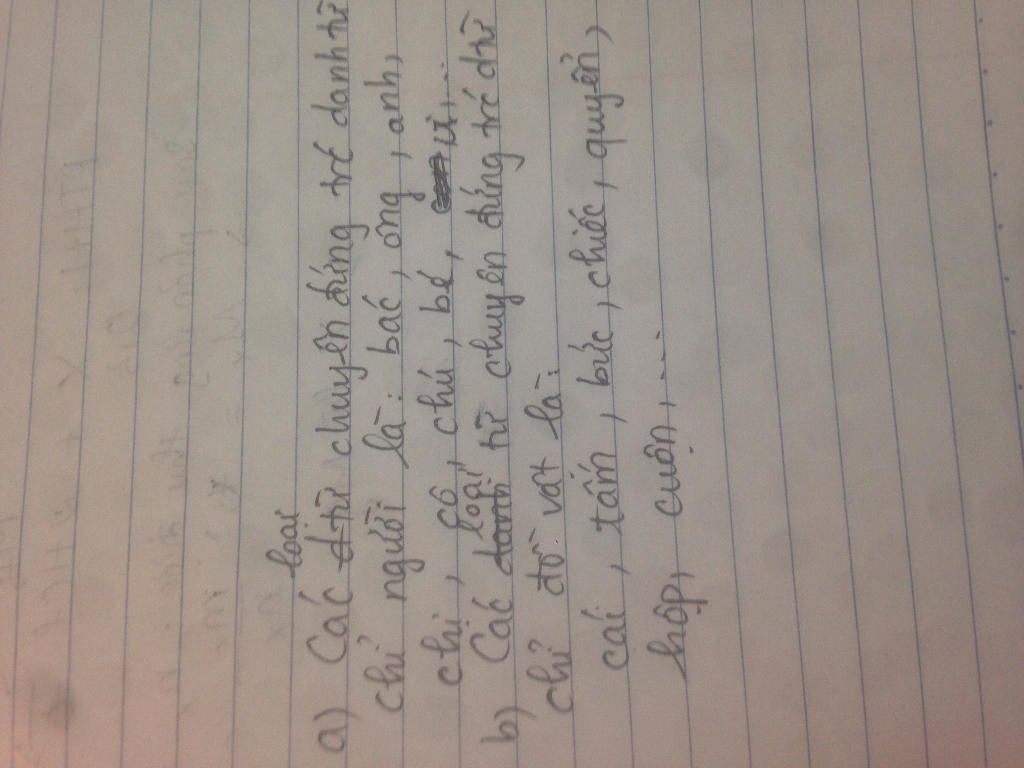 loại
a) Các từ chuyên đứng trc danh từ
chỉ người là: bác, ông, anh,
chị, cô, chú, bé, vị,...
loại
b) Các từ chuyên đứng trc dtừ
chỉ đồ vật là:
cái, tấm, bức, chiếc, quyển,
hộp, cuộn,...